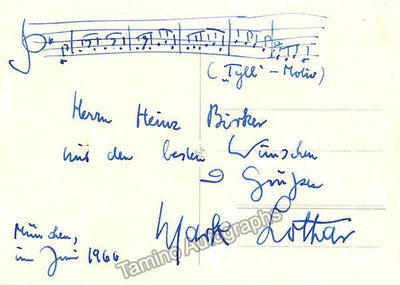 ("Tyll"-Motiv)
Herrn Heinz Birker
mit den besten Wünschen
u Grüßen
Mark Lothar
München,
im Juni 1966
Tamino Autographs